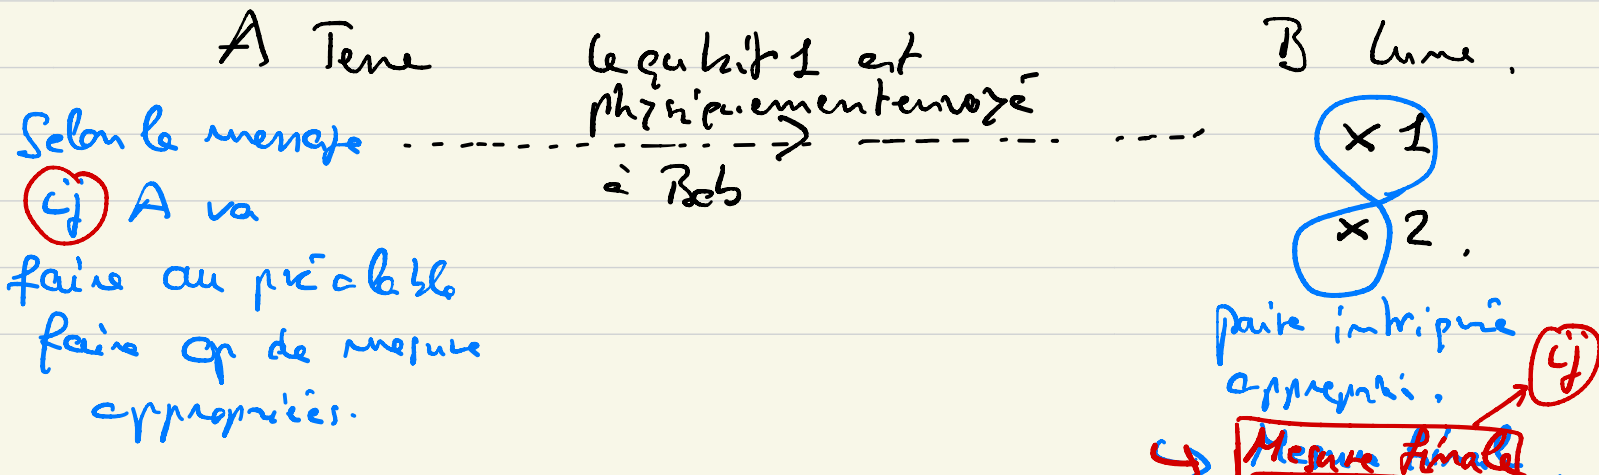 A Terre
le qubit 1 est
physiquement envoyé
à Bob
B Lune.
Selon le message
ij A va
faire au préalable
faire op de mesure
appropriées.
x 1
x 2.
paire intriquée
appropriée.
ij
Mesure finale